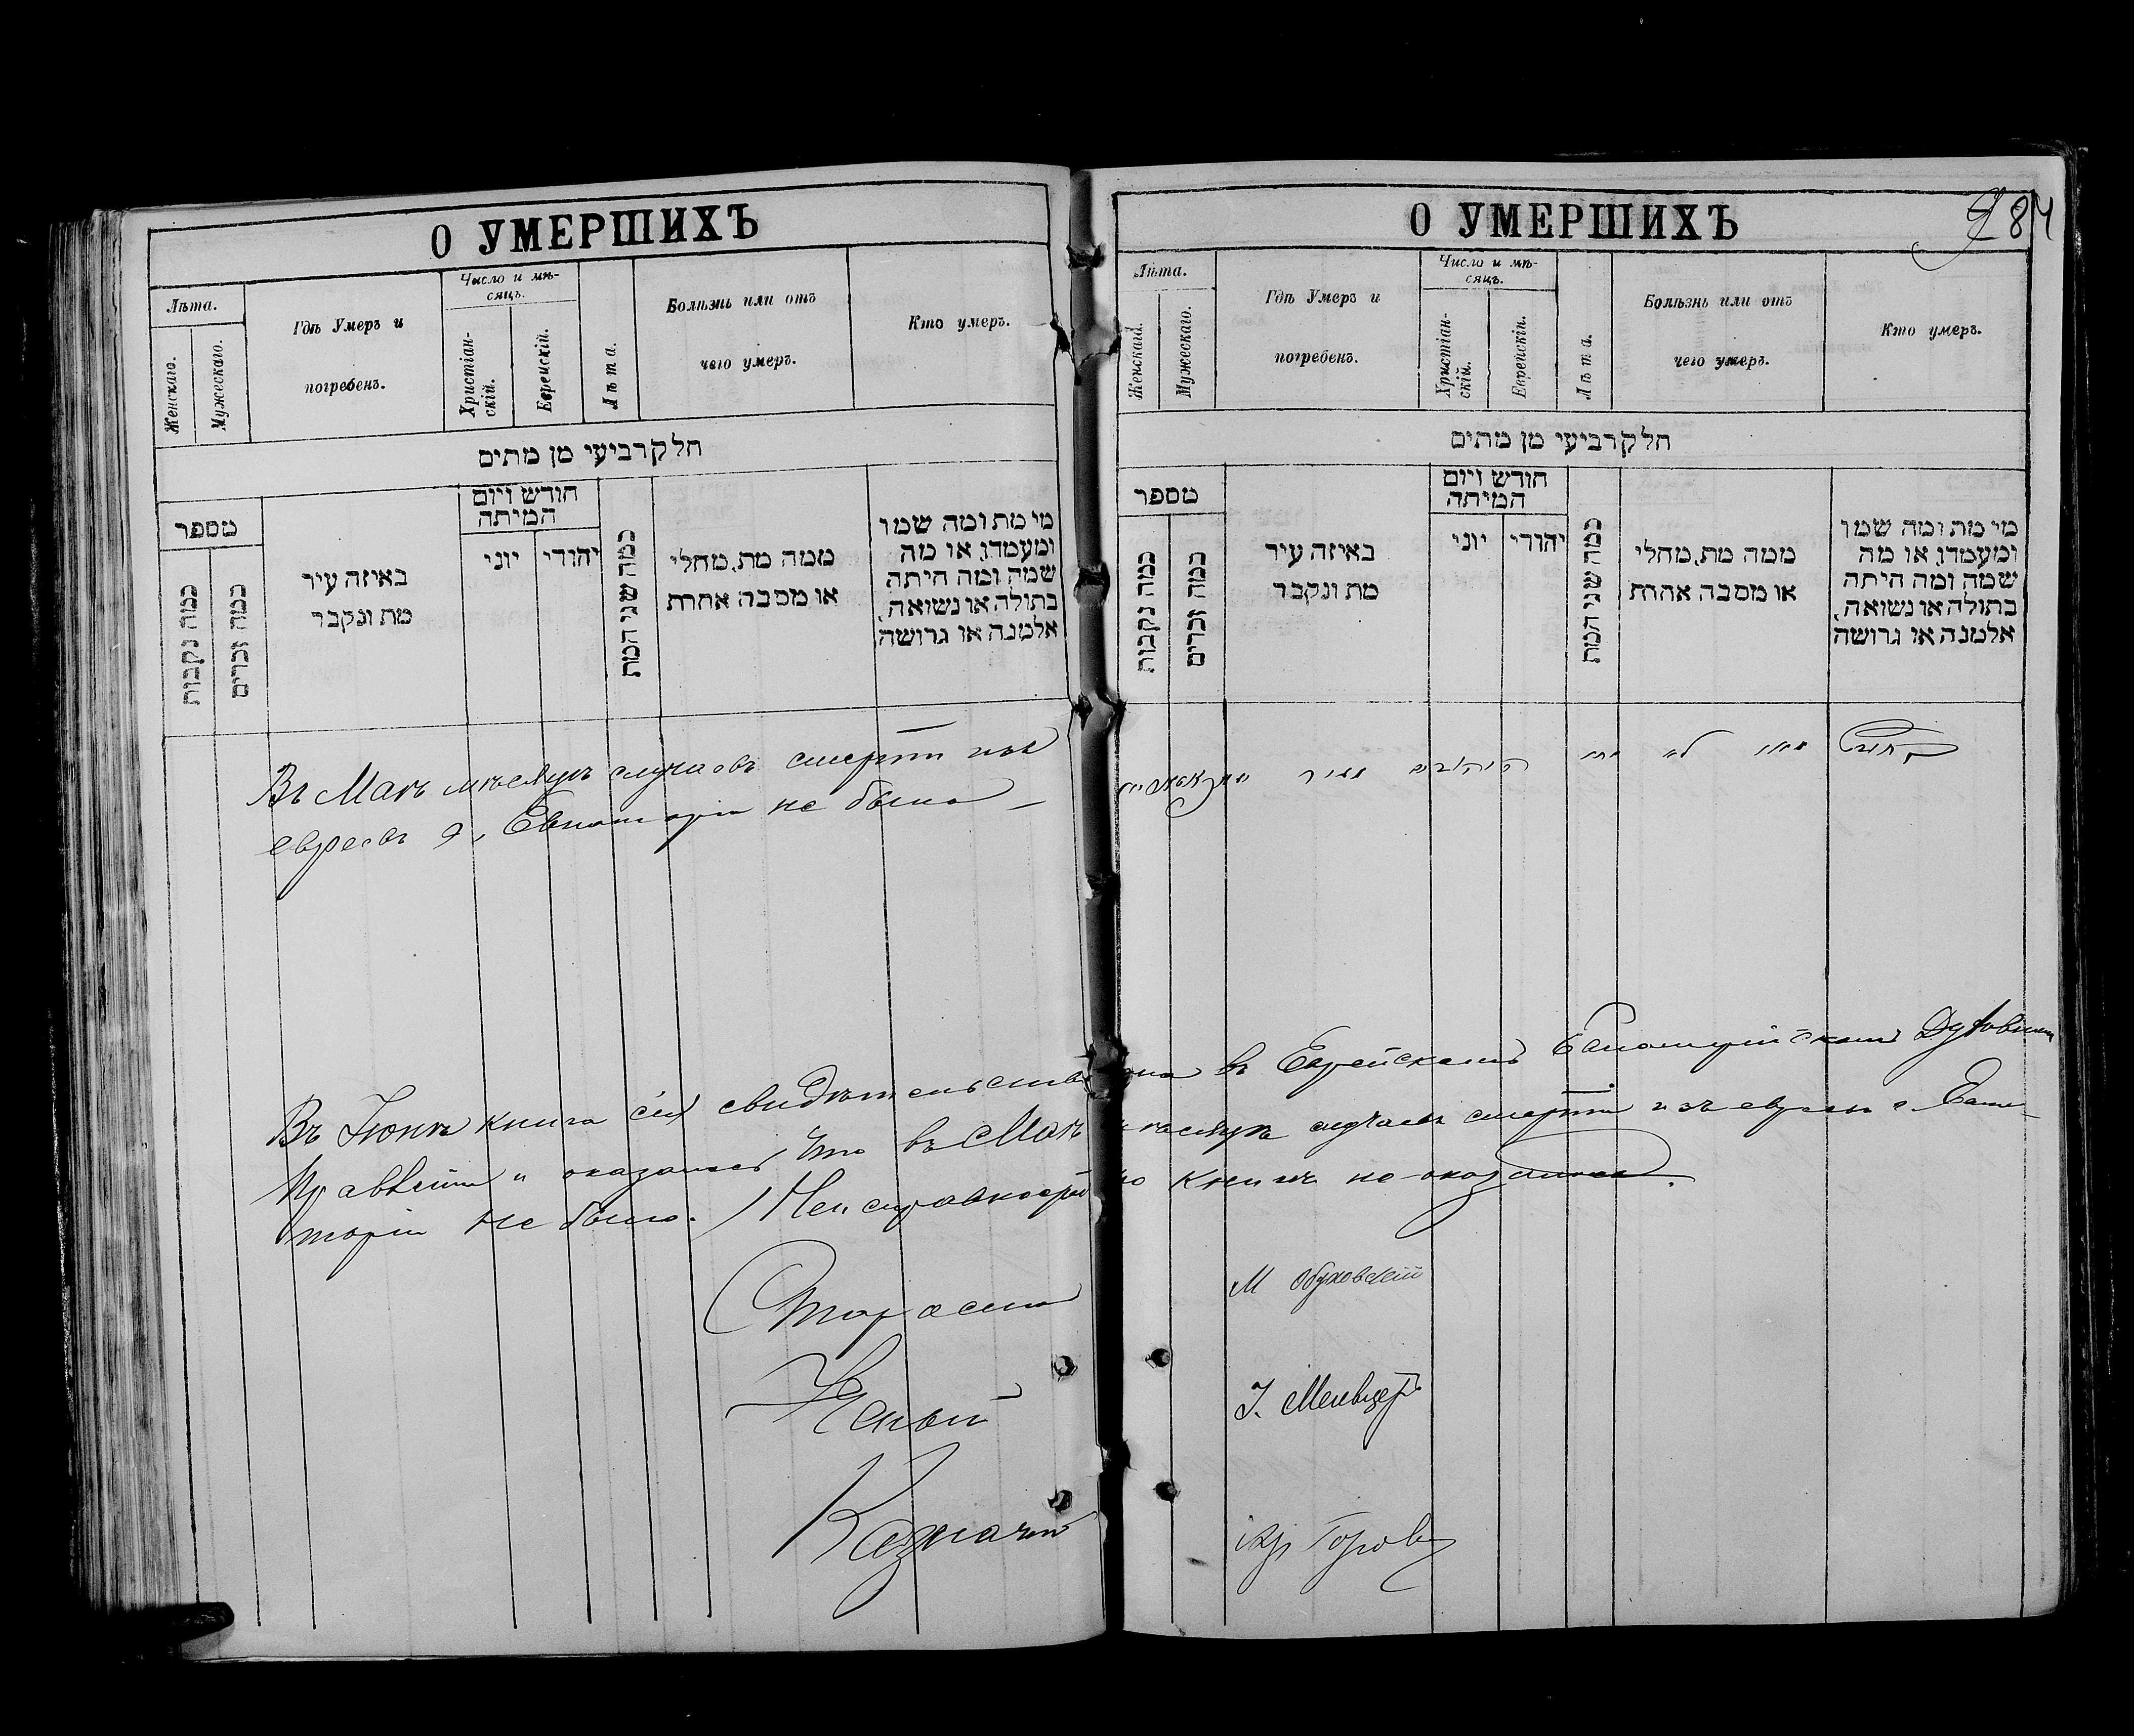 О УМЕРШИХЪ
Лѣта.
Женскаго.
Мужескаго.
Гдѣ Умеръ и
погребенъ.
Число и мѣ-
сяцъ.
Христіан-
скій.
Еврейскій.
Лѣта.
Болѣзнь или отъ
чего умеръ.
Кто умеръ.
חלק רביעי מן מתים
מספר
כמה נקבות
כמה זכרים
באיזה עיר
מת ונקבר
חודש ויום
המיתה
יוני
יהודי
כמה שני המת
ממה מת, מחלי
או מסבה אחרת
מי מת ומה שמו
ומעמדו, או מה
שמה ומה היתה
בתולה או נשואה,
אלמנה או גרושה
Въ Маѣ мѣсяцѣ случаевъ смерти изъ
евреевъ г. Евпаторіи не было
О УМЕРШИХЪ
284
Лѣта.
Женскаго.
Мужескаго.
Гдѣ Умеръ и
погребенъ.
Число и мѣ-
сяцъ.
Христіан-
скій.
Еврейскій.
Лѣта.
Болѣзнь или отъ
чего умеръ.
Кто умеръ.
חלק רביעי מן מתים
מספר
כמה נקבות
כמה זכרים
באיזה עיר
מת ונקבר
חודש ויום
המיתה
יוני
יהודי
כמה שני המת
ממה מת, מחלי
או מסבה אחרת
מי מת ומה שמו
ומעמדו, או מה
שמה ומה היתה
בתולה או נשואה,
אלמנה או גרושה
מאי לא מת היהודים מעיר
Въ Іюнѣ книга сія свидѣтельствована въ Еврейскомъ Евпаторійскомъ Духовномъ
Правленіи и оказалось что въ Маѣ мѣсяцѣ случаевъ смерти изъ евреевъ г. Евпа-
торіи не было. Неисправностей по книгѣ не оказалось.
Староста М Обуховскій
Ученый І.
Казначей